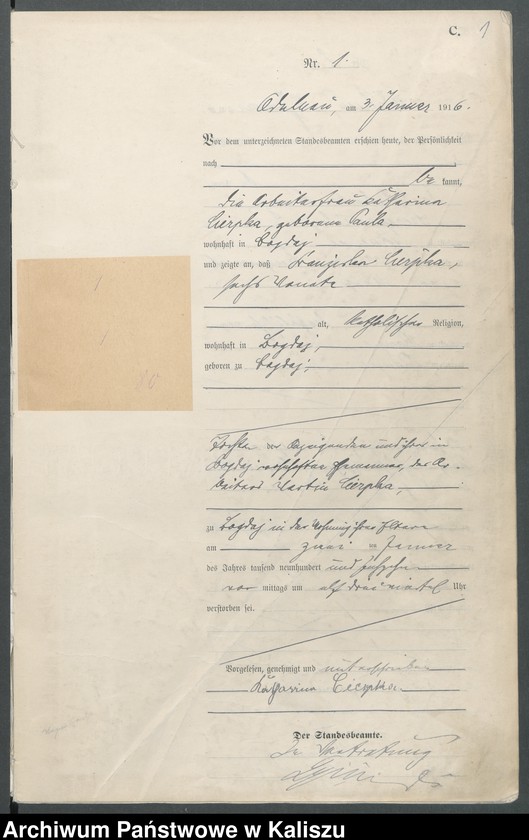 C. 1
Nr. 1.
Adelnau, am 3. Januar 1916.
Vor dem unterzeichneten Standesbeamten erschien heute, der Persönlichkeit
nach
be kannt,
die Arbeiterfrau Katharina
Cierpka, geborene
wohnhaft in Bogdaj
und zeigte an, daß Cierpka,
sechs Monate
alt, katholischer Religion,
wohnhaft in Bogdaj,
geboren zu Bogdaj,
Tochter der Anzeigenden und ihres in
Bogdaj Ehemannes, des Ar-
beiters Martin Cierpka,
zu Bogdaj in der Wohnung ihrer Eltern
am zwei Januar
des Jahres tausend neunhundert und sechzehn
vor mittags um elf drei viertel Uhr
verstorben sei.
Vorgelesen, genehmigt und unterschrieben
Katharina Cierpka
Der Standesbeamte.
In Vertretung
Archiwum Państwowe w Kaliszu